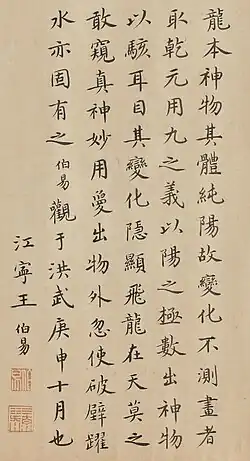 龍本神物其體純陽故變化不測畫者
取乾元用九之義以陽之極數出神物
以駭耳目其變化隱顯飛龍在天莫之
敢窺真神妙用愛出物外忽使破壁躍
水亦固有之伯易觀于洪武庚申十月也
江寧王伯易